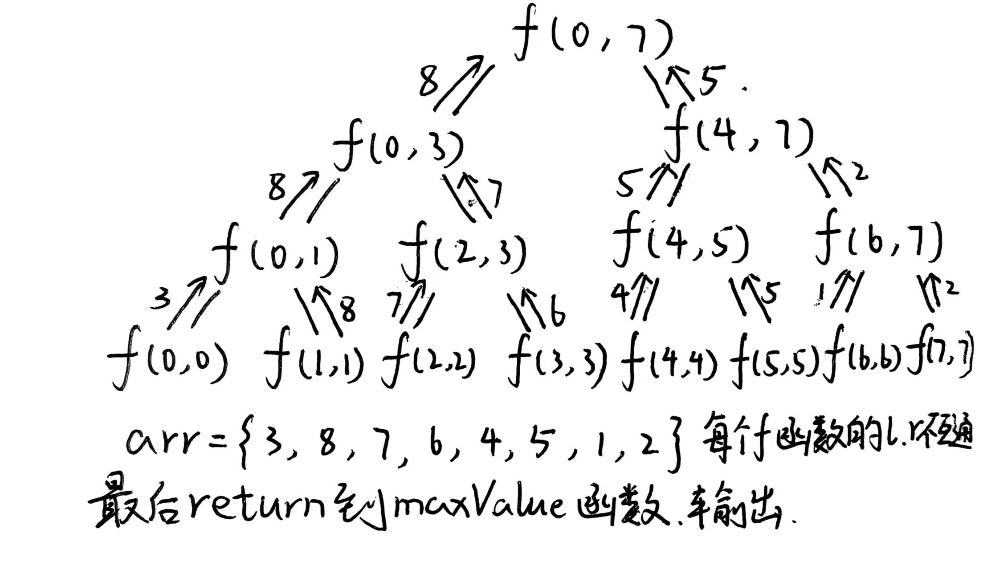 f(0,7)
8 5.
f(0,3) f(4,7)
8 7 5 2
f(0,1) f(2,3) f(4,5) f(6,7)
3 8 7 6 4 5 1 2
f(0,0) f(1,1) f(2,2) f(3,3) f(4,4) f(5,5) f(6,6) f(7,7)
arr={3,8,7,6,4,5,1,2} 每个f函数的l.r不互通
最后return到maxValue函数.输出.